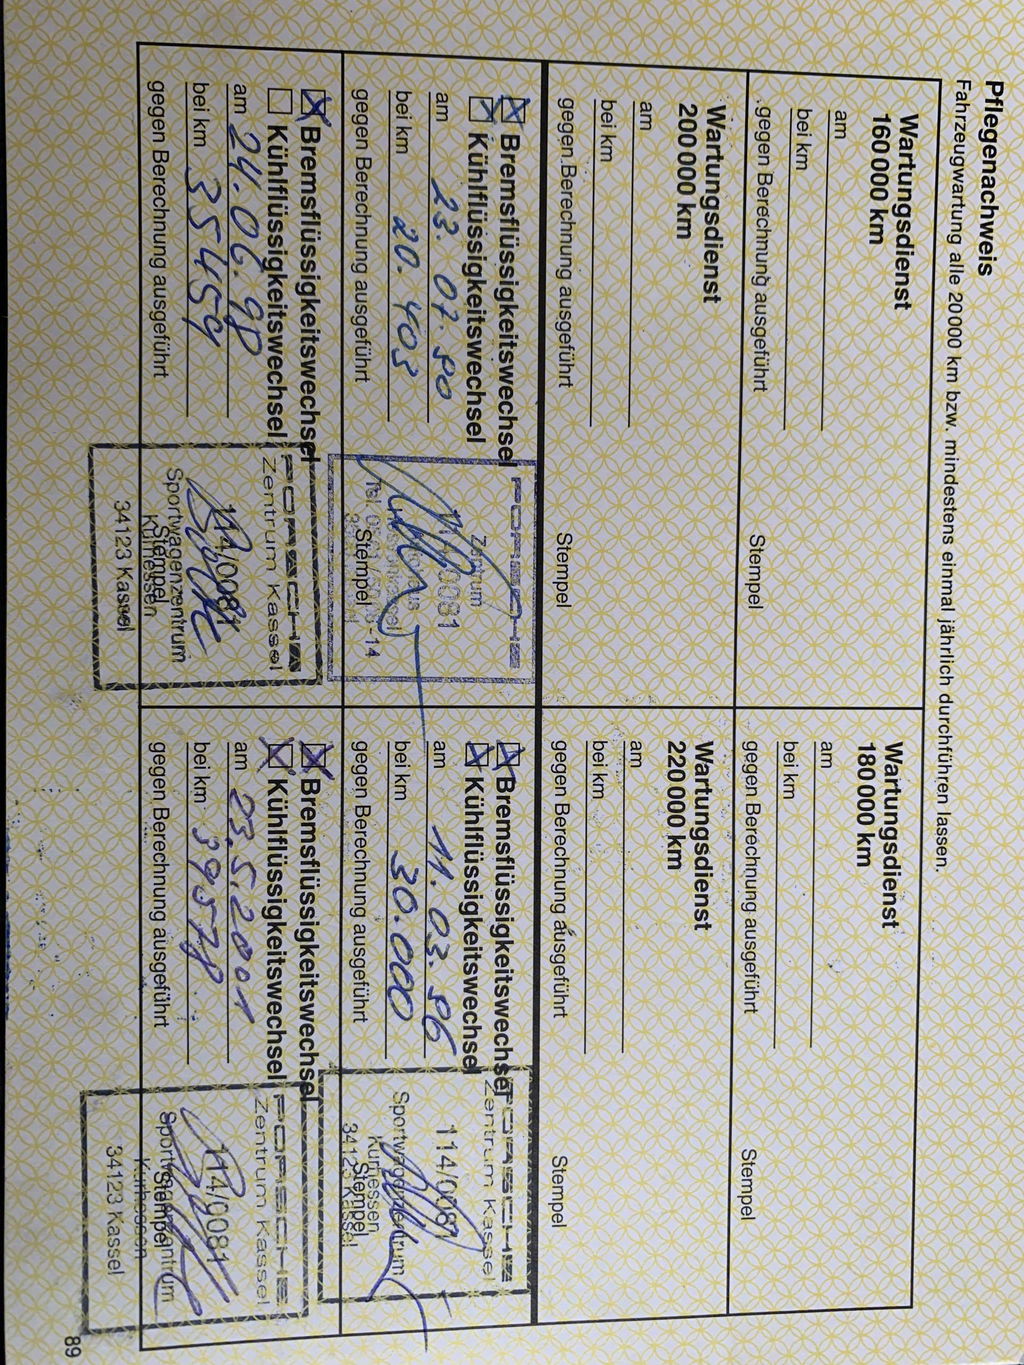 Pflegenachweis
Fahrzeugwartung alle 20000 km bzw. mindestens einmal jährlich durchführen lassen.
Wartungsdienst
160 000 km
am
bei km
gegen Berechnung ausgeführt
Stempel
Wartungsdienst
180 000 km
am
bei km
gegen Berechnung ausgeführt
Stempel
Wartungsdienst
200 000 km
am
bei km
gegen Berechnung ausgeführt
Stempel
Wartungsdienst
220 000 km
am
bei km
gegen Berechnung ausgeführt
Stempel
Bremsflüssigkeitswechsel
Kühlflüssigkeitswechsel
am 23.07.90
bei km 20.403
gegen Berechnung ausgeführt
PORSCHE
Zentrum
0081
Stempel
Bremsflüssigkeitswechsel
Kühlflüssigkeitswechsel
am 11.03.96
bei km 30.000
gegen Berechnung ausgeführt
PORSCHE
Zentrum Kassel
114/0081
Sportwagenzentrum
Kurhessen
Stempel
34123 Kassel
Bremsflüssigkeitswechsel
Kühlflüssigkeitswechsel
am 24.06.98
bei km 35459
gegen Berechnung ausgeführt
PORSCHE
Zentrum Kassel
114/0081
Sportwagenzentrum
Stempel
Kurhessen
34123 Kassel
Bremsflüssigkeitswechsel
Kühlflüssigkeitswechsel
am 23.5.2001
bei km 39578
gegen Berechnung ausgeführt
PORSCHE
Zentrum Kassel
114/0081
Sportwagenzentrum
Stempel
Kurhessen
34123 Kassel
89